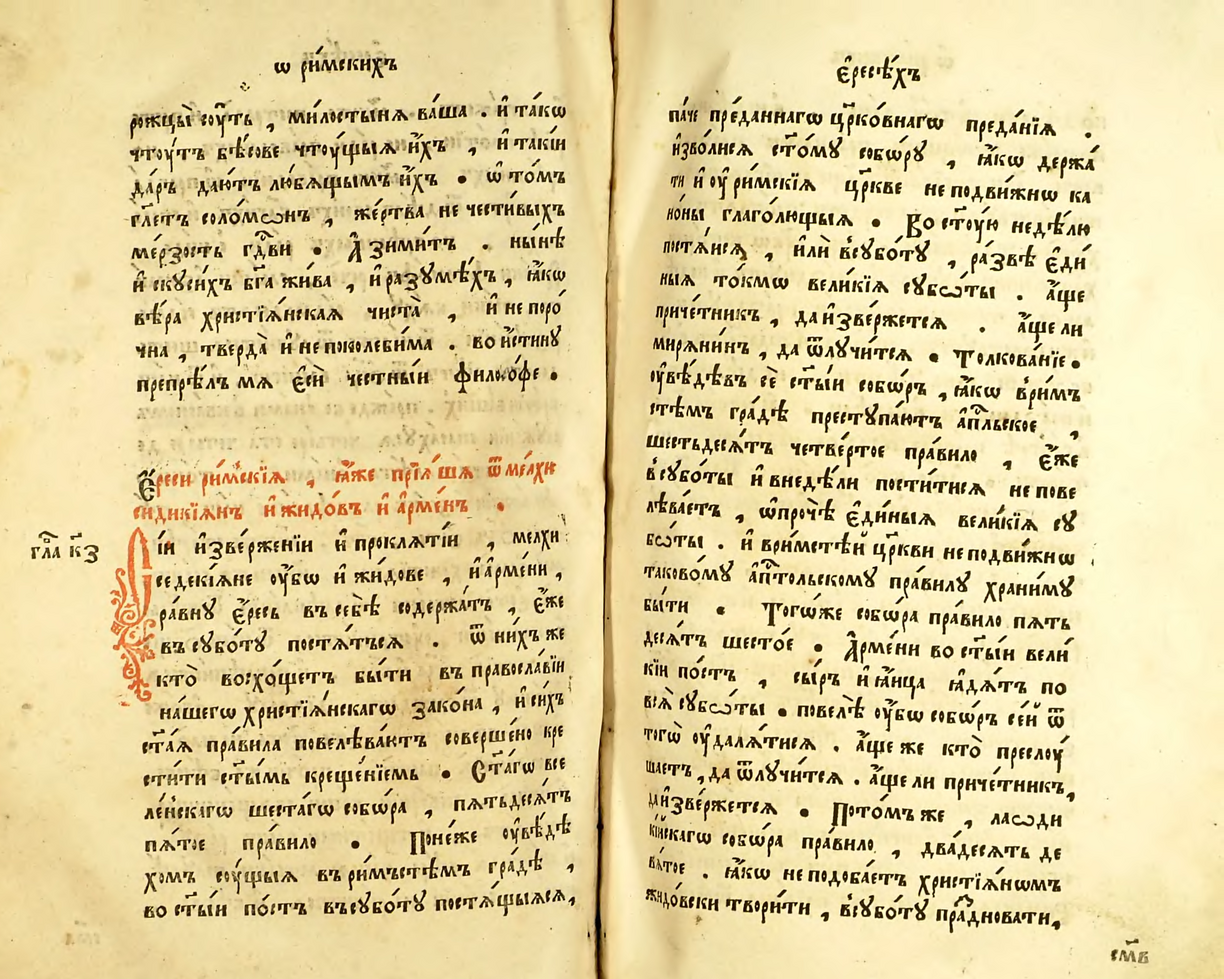 ѡ ри́мскихъ
рожцы̀ сꙋ́ть , ми́лостынѧ ва́ша . и҆ та́кѡ
чтꙋ́тъ бѣ́сове чтꙋ́щыѧ и҆̀хъ , и҆ та́кїи
да́ръ даю́тъ лю́бѧщымъ и҆̀хъ . ѡ то́мъ
гл҃етъ соломѡ́нъ , же́ртва не чести́выхъ
ме́рзость гд҇ви . А҆зими́тъ . ны́нѣ
и҆ скꙋси́хъ бг҃а жи́ва , и҆ разꙋмѣ́хъ , ꙗ҆́кѡ
вѣ́ра христїѧ́нскаѧ чиста̀ , и҆ не поро́
чна , тверда̀ и҆ не поколеби́ма . во и҆́стинꙋ
препрѣ́лъ мѧ є҆сѝ че́стныи фило́софе .
Є҆́реси ри́мскїѧ , ꙗ҆̀же прїѧ́шѧ ѿ мелхи
сидикїѧ́нъ и҆ жидо́въ и҆ а҆рме́нъ .
гла̀ к҃з
Сі́и и҆зверже́нїи и҆ проклѧ́тїи , мелхи
седекїѧ́не ᲂу҆́бѡ и҆ жи́дове , и҆ а҆рме́ни ,
ра́внꙋ є҆́ресь въ себѣ̀ содержа́тъ , є҆́же
въ сꙋбо́тꙋ постѧ́тьсѧ . ѿ ни́хъ же
кто̀ восхо́щетъ бы́ти въ правосла́вїи
на́шегѡ христїѧ́нскагѡ зако́на , и҆ си́хъ
ст҃а́ѧ пра́вила повелѣва́ютъ соверше́но кре
сти́ти ст҃ы́мъ креще́нїемь . Ст҃а́гѡ все
ле́нскагѡ шеста́гѡ собѡ́ра , пѧтьдесѧ́тъ
пѧ́тое пра́вило . Поне́же ᲂу҆вѣ́дѣ
хомъ сꙋ́щыѧ въ ри́мъстѣмъ гра́дѣ ,
во ст҃ы́и по́стъ въ сꙋбо́тꙋ постѧ́щыѧсѧ,
є҆́ресѣ́хъ
па́че пре́даннагѡ цр҃ко́внагѡ преда́нїѧ .
и҆зво́лисѧ ст҃о́мꙋ собѡ́рꙋ , ꙗ҆́кѡ держа́
ти и҆ ᲂу҆ ри́мскїѧ цр҃кве не подви́жнѡ ка
но́ны глаго́лющыѧ . Во ст҃ꙋ́ю недѣ́лю
постѧ́исѧ , и҆лѝ всꙋбо́тꙋ , ра́звѣ є҆ди́
ныѧ то́кмѡ вели́кїѧ сꙋбѡ́ты . а҆́ще
приче́тникъ , да и҆зве́ржетсѧ . а҆́ще ли
мирѧ́нинъ , да ѿлꙋчи́тсѧ . Толкова́нїе .
ᲂу҆вѣ́дѣвъ сѐ ст҃ы́и собѡ́ръ , ꙗ҆́кѡ врим
стѣ́мъ гра́дѣ престꙋпа́ютъ а҆пⷭ҇льское ,
шестьдесѧ́тъ четве́ртое пра́вило , є҆́же
всꙋбо́ты и҆ внедѣ́ли пости́тисѧ не пове
лѣва́етъ , ѡ҆про́чѣ є҆ди́ныѧ вели́кїѧ сꙋ
бѡ́ты . и҆ вримстѣ́й цр҃кви не подви́жнѡ
таково́мꙋ а҆пⷭ҇тольскомꙋ пра́вилꙋ храни́мꙋ
бы́ти . Тогѡ́же собѡ́ра пра́вило пѧть
десѧ́тъ шесто́е . А҆рме́ни во ст҃ы́и вели́
кїи по́стъ , сы́ръ и҆ ꙗ҆́ица ꙗ҆дѧ́тъ по
всѧ̀ сꙋбѡ́ты . повелѣ̀ ᲂу҆́бѡ собѡ́ръ се́й ѿ
тогѡ̀ ᲂу҆далѧ́тисѧ . а҆́ще же кто̀ преслꙋ́
шаетъ, да ѿлꙋчи́тсѧ . а҆́ще ли приче́тникъ,
да и҆зве́ржетсѧ . Пото́мъ же , лаѡди
кі́йскагѡ собѡ́ра пра́вило , два́десѧть де
вѧ́тое . ꙗ҆́кѡ не подоба́етъ христїѧ́нѡмъ
жидо́вски твори́ти , всꙋбо́тꙋ пра́здновати,
см҃в